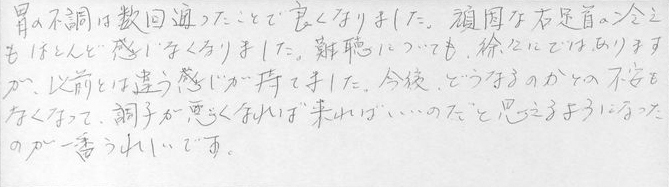 胃の不調は数回通ったことで良くなりました。頑固な右足首の冷え
もほとんど感じなくなりました。難聴についても、徐々にではあります
が、以前とは違う感じが持てました。今後、どうなるのかとの不安も
なくなって、調子が悪くなれば来ればいいのだと思えるようになった
のが一番うれしいです。